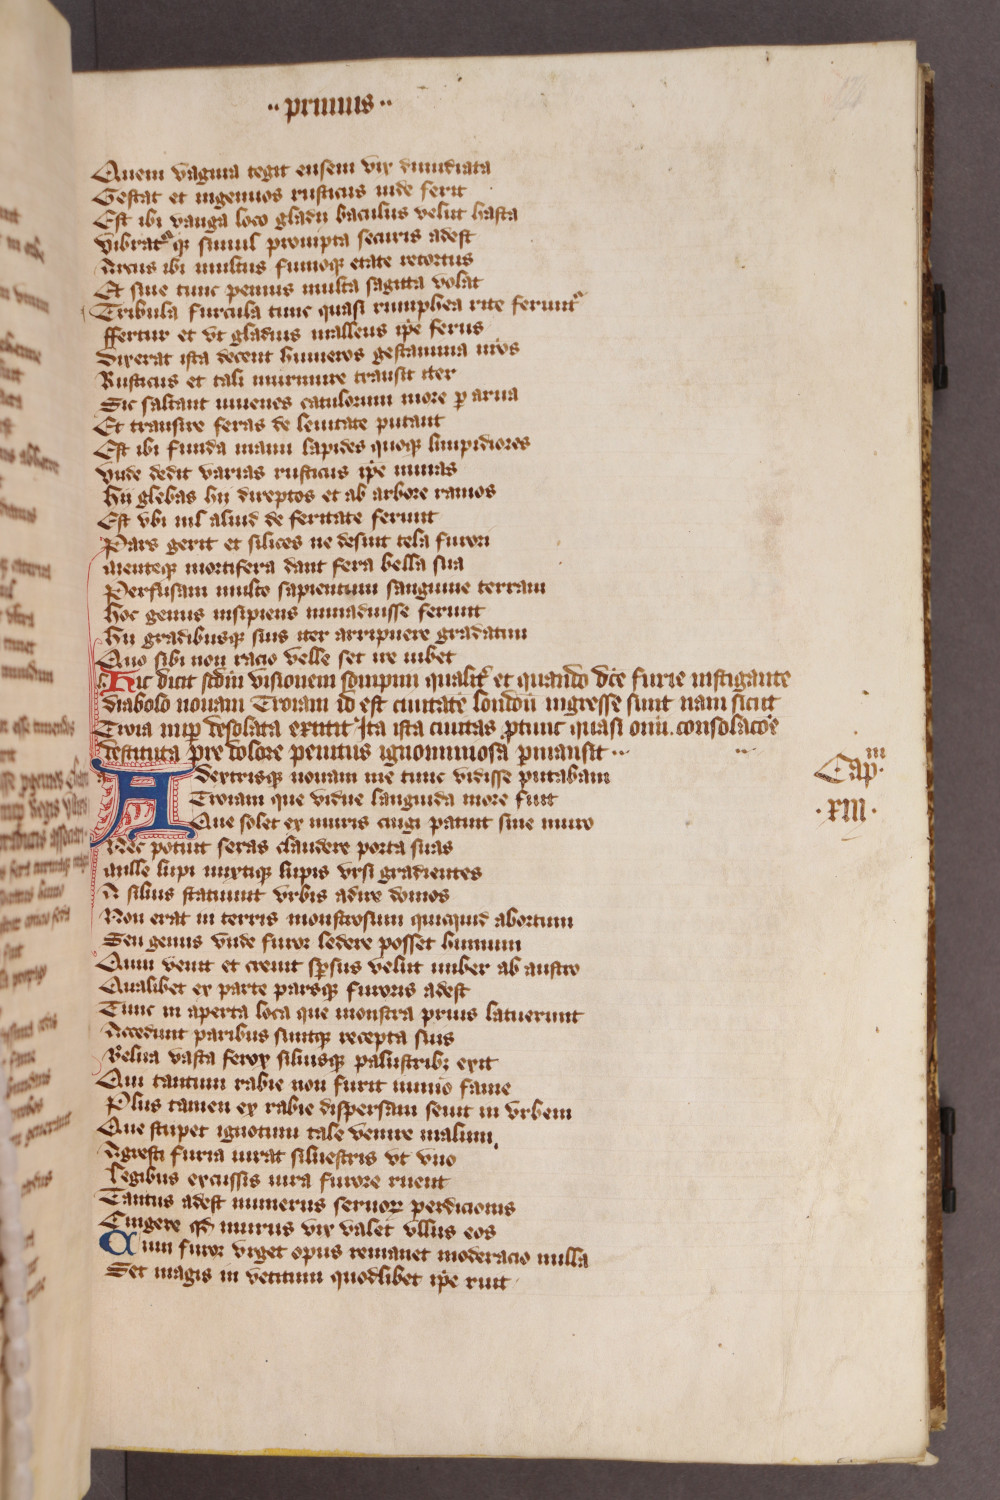 ·· primus ··
Quem vagina tegit ensem vix dimidiata
Gestat et ingenuos rusticus inde ferit
Est ibi vanga loco gladii baculus velut hasta
vibrat᷑ q̨ simul prompta securis adest
Arcus ibi multus fumoq̨ etate retortus
Et sine tunc pennis multa sagitta volat
Tribula furcula tunc quasi rumphea rite ferunt᷑
ffertur et vt gladius malleus ip̄e ferus
Dixerat ista decent humeros gestamina nr̄os
Rusticus et tali murmure transit iter
Sic saltant iuuenes catulorum more ꝑ arua
Et transire feras de leuitate putant
Est ibi funda manu lapides quoq̨ limpidiores
vnde dedit varias rusticus ip̄e minas
Hii glebas hii direptos et ab arbore ramos
Est vbi nil aliud de feritate ferunt
Pars gerit et silices ne desint tela furori
Menteq̨ mortifera dant fera bella sua
Perfusam multo sapientum sanguine terram
Hoc genus insipiens inmaduisse ferunt
Hii gradibusq̨ suis iter arripuere gradatim
Quo sibi non racio velle set ire iubet
Hic dicit scdm̄ visionem sompnii qualit᷑ et quando dc̄e furie instigante
diabolo nouam Troiam id est ciuitatē london̄ ingresse sunt nam sicut
Troia nup̱ desolata extitit Ita ista ciuitas ꝓtunc quasi om̄i consolacōe
destituta p̄re dolore penitus ignominiosa ꝑmansit ··
Cap᷑ᵐ
·XIII·
A Dextrisq̨ nouam me tunc vidisse putabam
Troiam que vidue languida more fuit
Que solet ex muris cingi patuit sine muro
Nec potuit seras claudere porta suas
Mille lupi mixtiq̨ lupis vrsi gradientes
A siluis statuunt vrbis adire domos
Non erat in terris monstrosum quicquid abortum
Seu genus vnde furor ledere posset humum
Quin venit et creuit sp̱sus velut imber ab austro
Qualibet ex parte parsq̨ furoris adest
Tunc in aperta loca que monstra prius latuerunt
Accedunt paribus suntq̨ recepta suis
Belua vasta ferox siluisq̨ palustrib; exit
Qui tantum rabie non furit immo fame
Plus tamen ex rabie dispersam seuit in vrbem
Que stupet ignotum tale venire malum
Agresti furia iurat siluestris vt vno
Legibus excussis iura furore ruent
Tantus adest numerus seruoꝝ perdicionis
Cingere qd̄ murus vix valet vllus eos
Cum furor vrget opus remanet moderacio nulla
Set magis in vetitum quodlibet ip̄e ruit